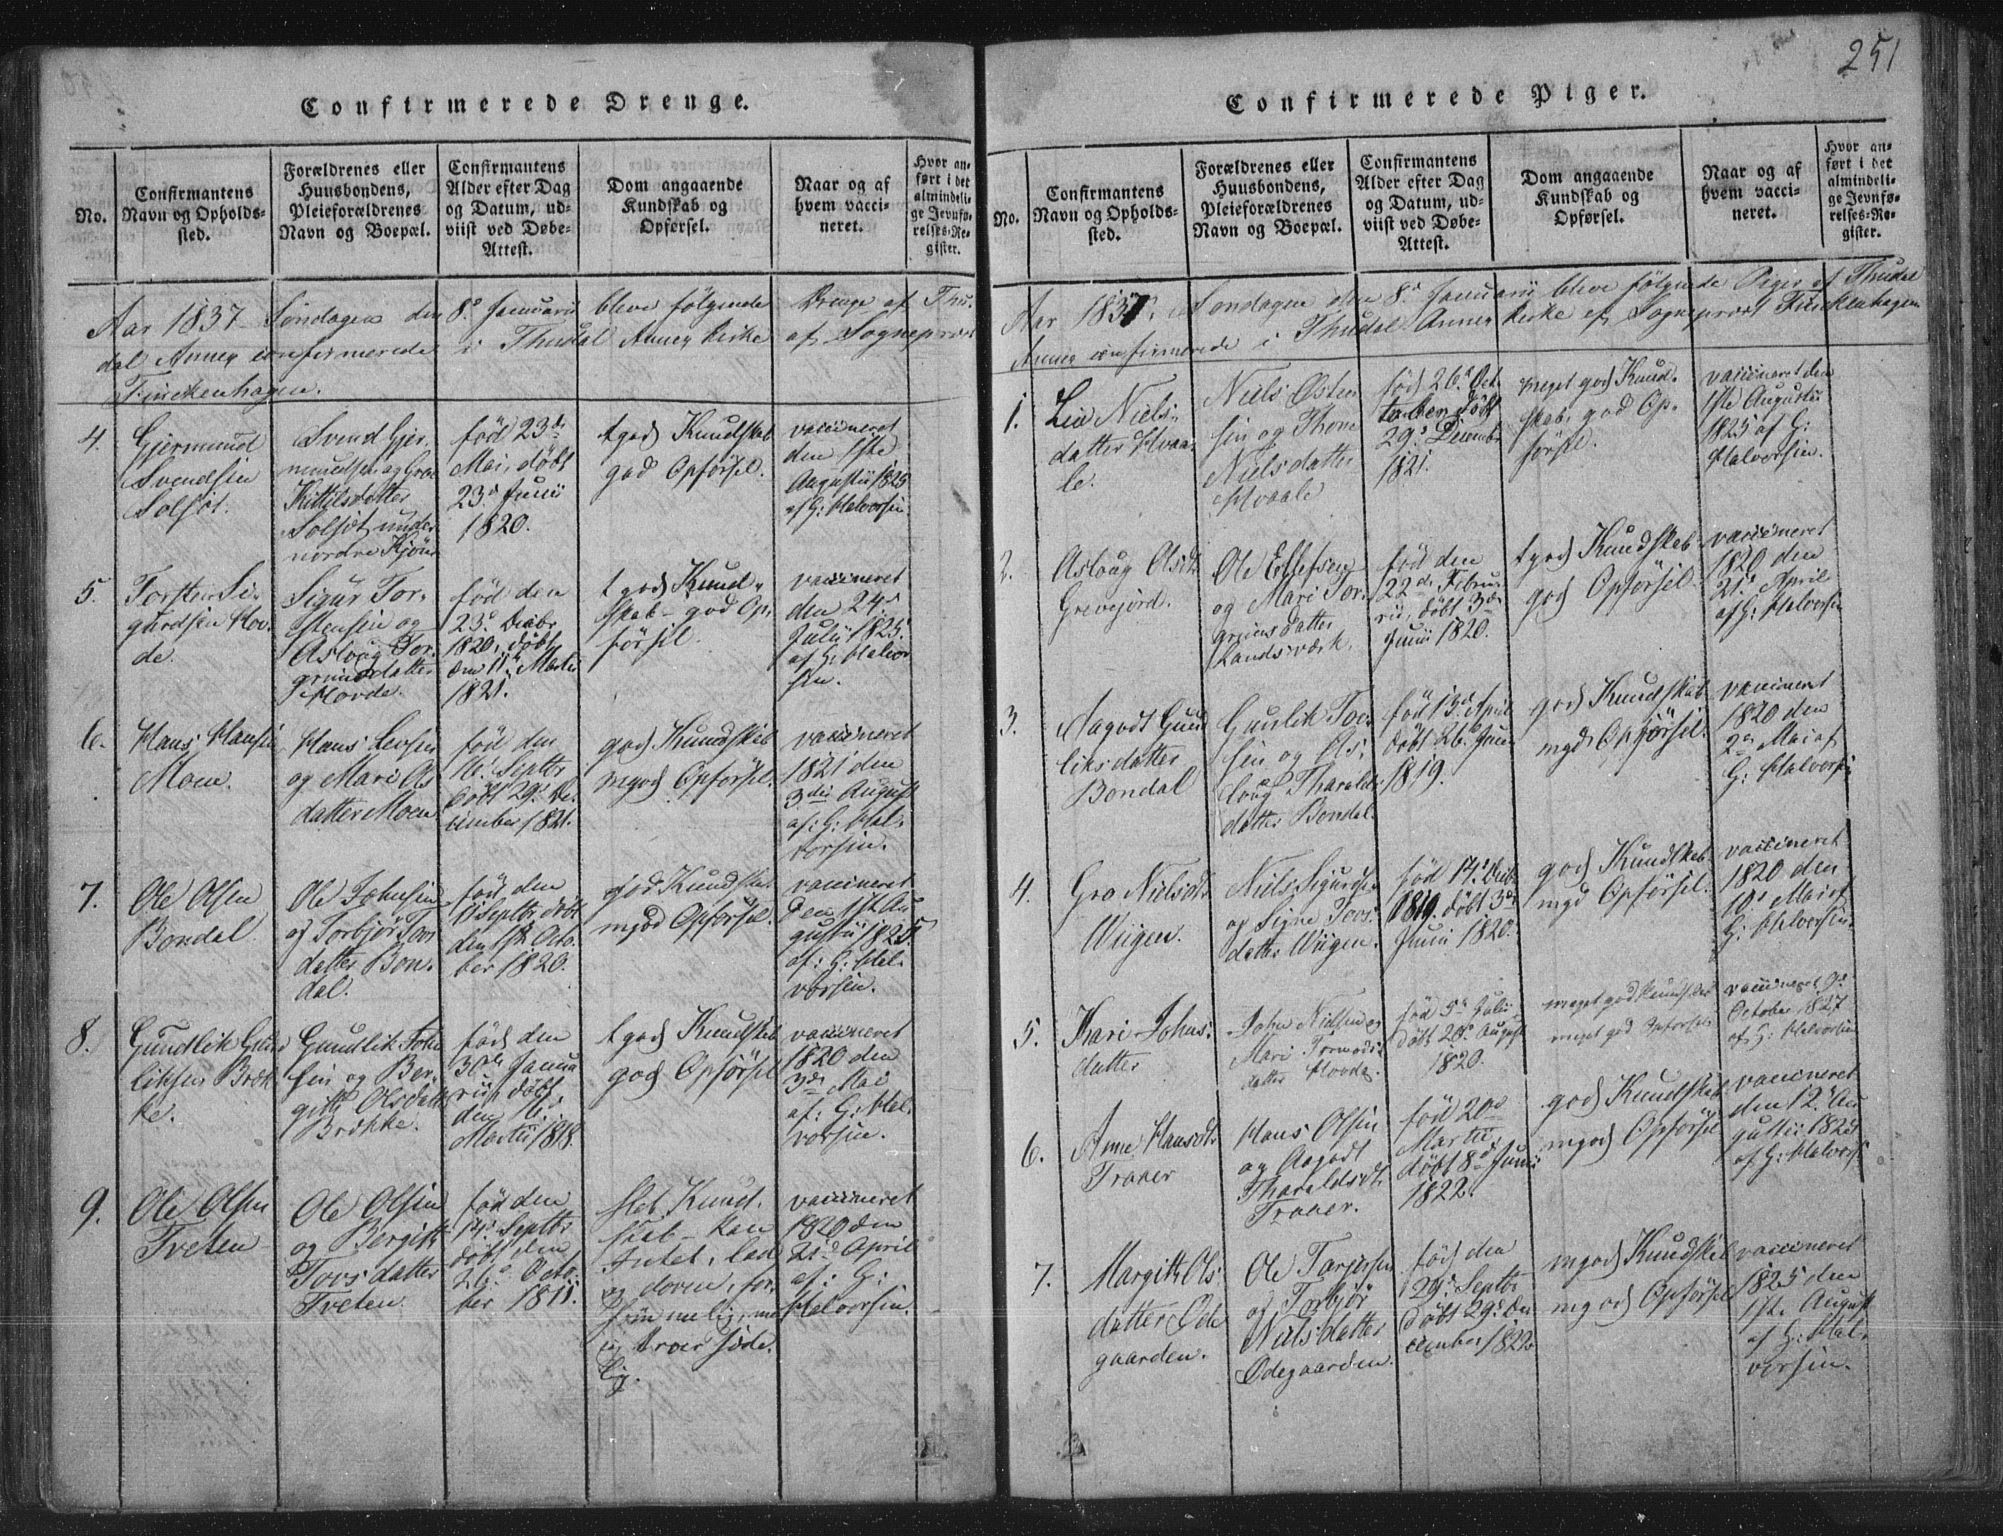 251
Confirmerede Drenge.
No.
Confirmantens
Navn og Opholds-
sted.
Forældrenes eller
Huusbondens,
Pleieforældrenes
Navn og Boepæl.
Confirmantens
Alder efter Dag
og Datum, ud-
viist ved Døbe-
Attest.
Dom angaaende
Kundskab og
Opførsel.
Naar og af
hvem vacci-
neret.
Hvor an-
ført i det
almindeli-
ge Jevnfø-
relses-Re-
gister.
Aar 1837 Søndagen den 8d Januarii bleve følgende Drenge af Thu-
dal Annex confirmerede i Thudal Annex Kirke af Sogneprovst
Finckenhagen.
4.
Gjermund
Svendsen
Solsøt.
Svend Gjer-
mundsen og Gro
Kittilsdatter
Solsøt under
nordre Kjøn
fød 23de
Mai, døbt
23d Junii
1820.
tgod Kundskab
god Opførsel.
vaccineret
den 1ste
Augustii 1825
af G: Halvorsen
5.
Torsten Si-
gurdsen Hov-
de.
Sigur Tor-
stensen og
Aslaug Tor-
grimsdatter
Hovde.
fød den
23d Decbr
1820, døbt
den 11te Martii
1821.
tgod Kund-
skab - god Op-
førsel.
vaccineret
den 24d
Julii 1825
af G: Halvor
sen.
6.
Hans Hansen
Moen.
Hans Levsen
og Mari Ols
datter Moen
fød den
16d Septbr
døbt 29d De-
cember 1821.
god Kundskab
mgod Opførsel.
vaccineret
1821 den
3die August
af: G: Hal-
vorsen.
7.
Ole Olsen
Bondal
Ole Johnsen
og Torbjør Tovs
datter Bon-
dal.
fød den
11 Septbr døbt
den 1ste Octo-
ber 1820.
god Kundskab
mgod Opførsel.
vaccineret
den 1ste Au
gustii 1825
af: G: Hal-
vorsen.
8.
Gundlik Gund
liksen Bræk
ke.
Gundlik John
sen og Ber-
gitte Olsdatter
Brække.
fød den
30te Janua
rii, døbt
den 16d
Martii 1818.
tgod Kundskab
god Opførsel
vaccineret
1820 den
3de Mai
af: G: Hal-
vorsen.
9.
Ole Olsen
Tveten
Ole Olsen
og Bergitte
Tovsdatter
Tveten.
fød den
14d Septbr
døbt den
26d Octo-
ber 1811.
slet Kund-
skab - kan
Intet, lad
og doven, for-
sømmelig,
og tvær
lig.
vaccineret
1820 den
21d April
af: G:
Halvorsen.
Confirmerede Piger.
No.
Confirmantens
Navn og Opholds-
sted.
Forældrenes eller
Huusbondens,
Pleieforældrenes
Navn og Boepæl.
Confirmantens
Alder efter Dag
og Datum, ud-
viist ved Døbe-
Attest.
Dom angaaende
Kundskab og
Opførsel.
Naar og af
hvem vacci-
neret.
Hvor an-
ført i det
almindeli-
ge Jevnfø-
relses-Re-
gister.
Aar 1837 Søndagen den 8d Januarii bleve følgende Piger af Thudal
Annex confirmerede i Thudal Annex Kirke af Sogneprovst Finckenhagen
1.
Liv Niels-
datter Hvaa-
le.
Niels Østen
sen og Thone
Nielsdatter
Hvaale
fød 26d Oct
tober døbt
29d Decembr
1821.
meget god Kund-
skab, god Op-
førsel.
vaccineret den
1ste Augustii
1825 af G:
Halvorsen.
2.
Aslaug Olsdtr
Grevejord.
Ole Ellefsen
og Mari Tor-
grimsdatter
Landsværk.
fød den
22de Febru-
rii, døbt 3de
Junii 1820.
tgod Kundskab
god Opførsel.
vaccineret
1820 den
21d April
af G: Halvorsen
3.
Aagodt Gund
liksdatter
Bondal
Gunlik Tov-
sen og As-
laug Tharalds-
datter Bondal.
fød 13d April
døbt 26d Juni
1819.
god Kundskab
mgd Opførsel.
vaccineret
1820 den
2den Mai af
G: Halvorsen
4.
Gro Nielsdtr
Wiigen.
Niels Sigurds.
og Signe Tovs-
datter Wiigen.
fød 14d Decbr
1819. døbt 3de
Junii 1820.
god Kundskab
mgd Opførsel.
vaccineret
1820 den
10d Mai af
G: Halvorsen.
5.
Kari Johns-
datter
John Nielsen og
Mari Tormods-
datter Hovde.
fød 5te Julii
døbt 20d August
1820.
meget god Kundskab
meget god Opførsel
vaccineret 9d
October 1827
af G: Halvorsen
6.
Anne Hansdtr
Traaer
Hans Olsen
og Aagodt
Tharaldsdtr
Traaer.
fød 20d
Martii,
døbt 8d Junii
1822.
god Kundskab
mgod Opførsel
vaccineret
den 12d Au
gustii 1825
af G: Halvors
7.
Margith Ols
datter Øde
gaarden.
Ole Tarjersen
og Torbjør
Nielsdatter
Ødegaarden.
fød den
29d Septbr
døbt 29d De
cember 1822
mgod Kundskab
mgod Opførsel
vaccineret
1825 den
1ste August
af G: Hal-
vorsen.